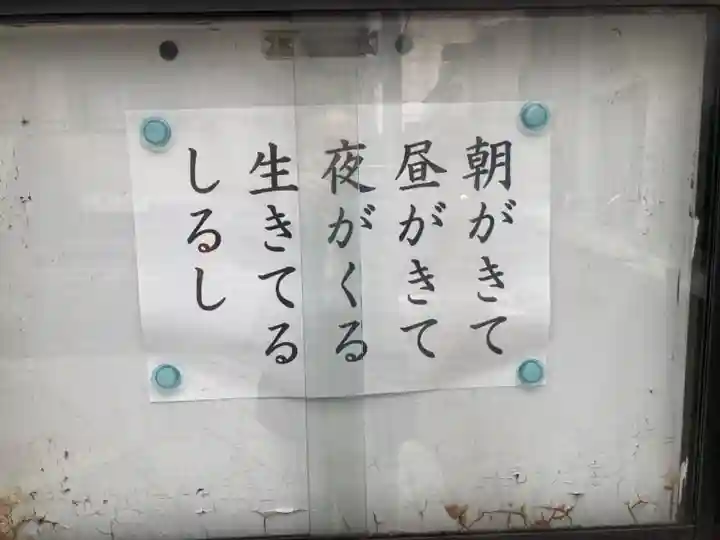 朝がきて
昼がきて
夜がくる
生きてる
しるし